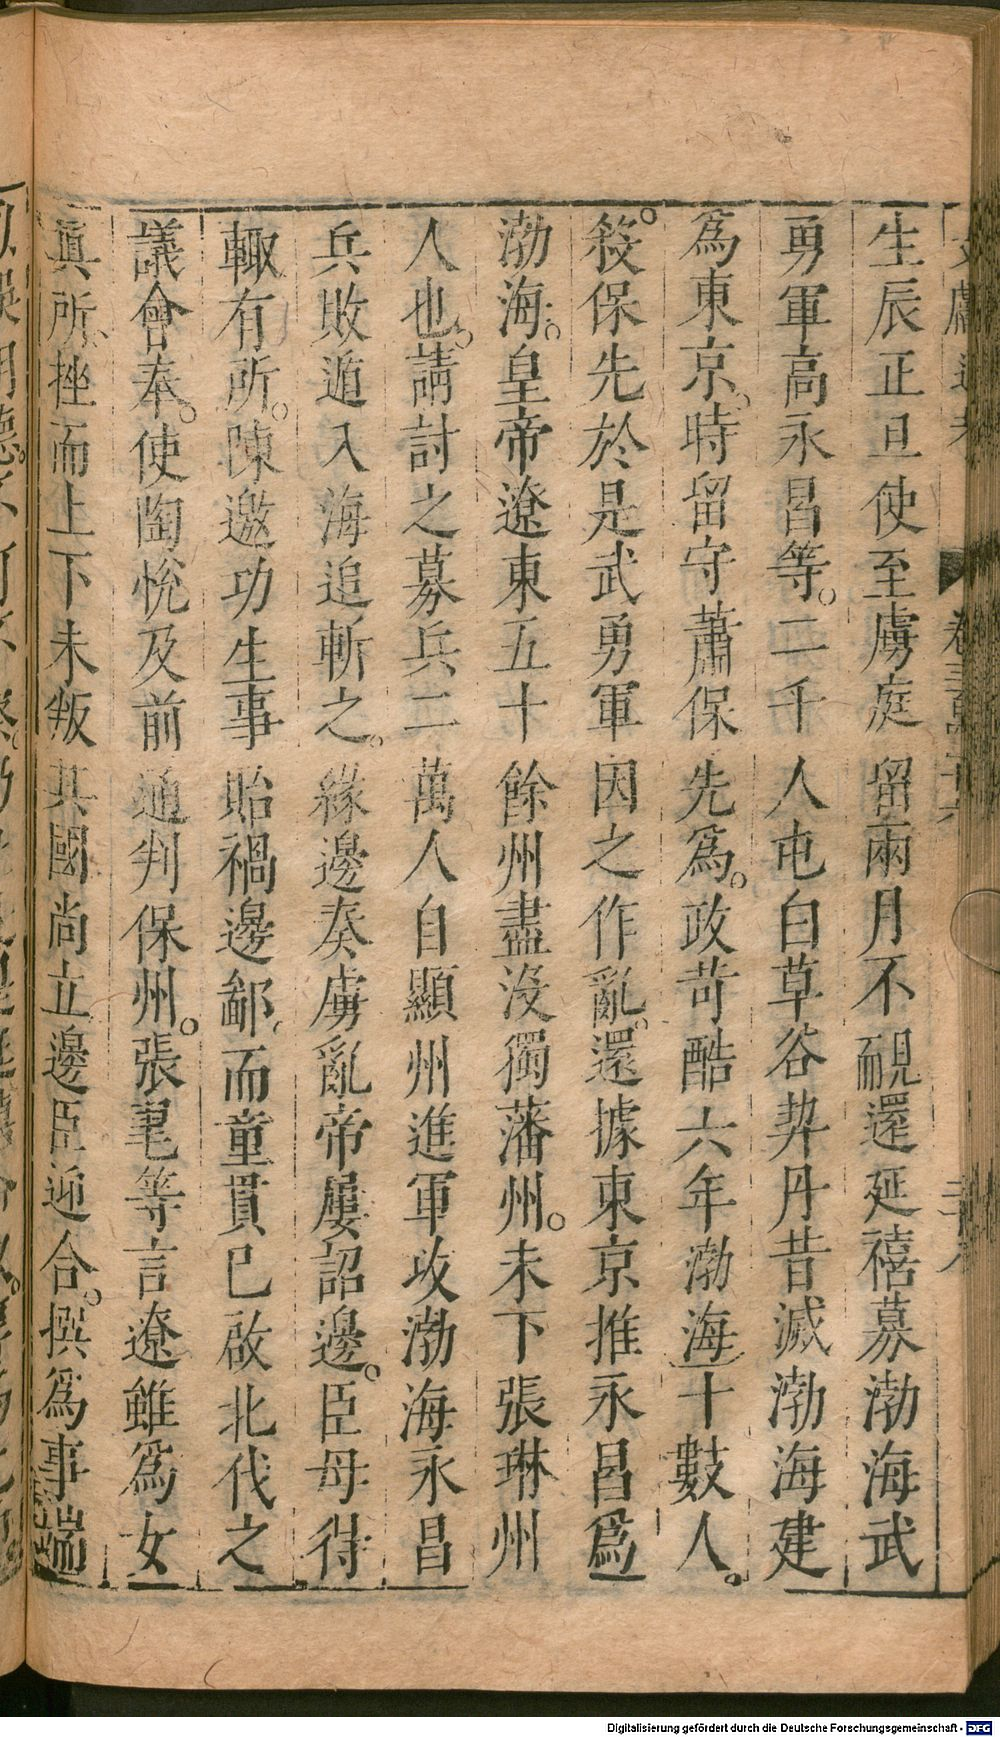 生辰正旦使至虜庭留兩月不覗還延禧募渤海武
勇軍高永昌等二千人屯白草谷契丹昔滅渤海建
為東京時留守蕭保先為政苛酷六年渤海十數人
殺保先於是武勇軍因之作亂還據東京推永昌爲
渤海皇帝遼東五十餘州盡沒獨藩州未下張琳州
人也請討之募兵二萬人自顯州進軍攻渤海永昌
兵敗遁入海追斬之緣邊奏虜亂帝屢詔邊臣毋得
輙有所陳邀功生事貽禍邊鄙而童貫已啟北伐之
議會奉使陶悅及前通判保州張毣等言遼雖爲女
眞所挫而上下未叛其國尚立邊臣迎合撰爲事端
Digitalisierung gefördert durch die Deutsche Forschungsgemeinschaft - DFG